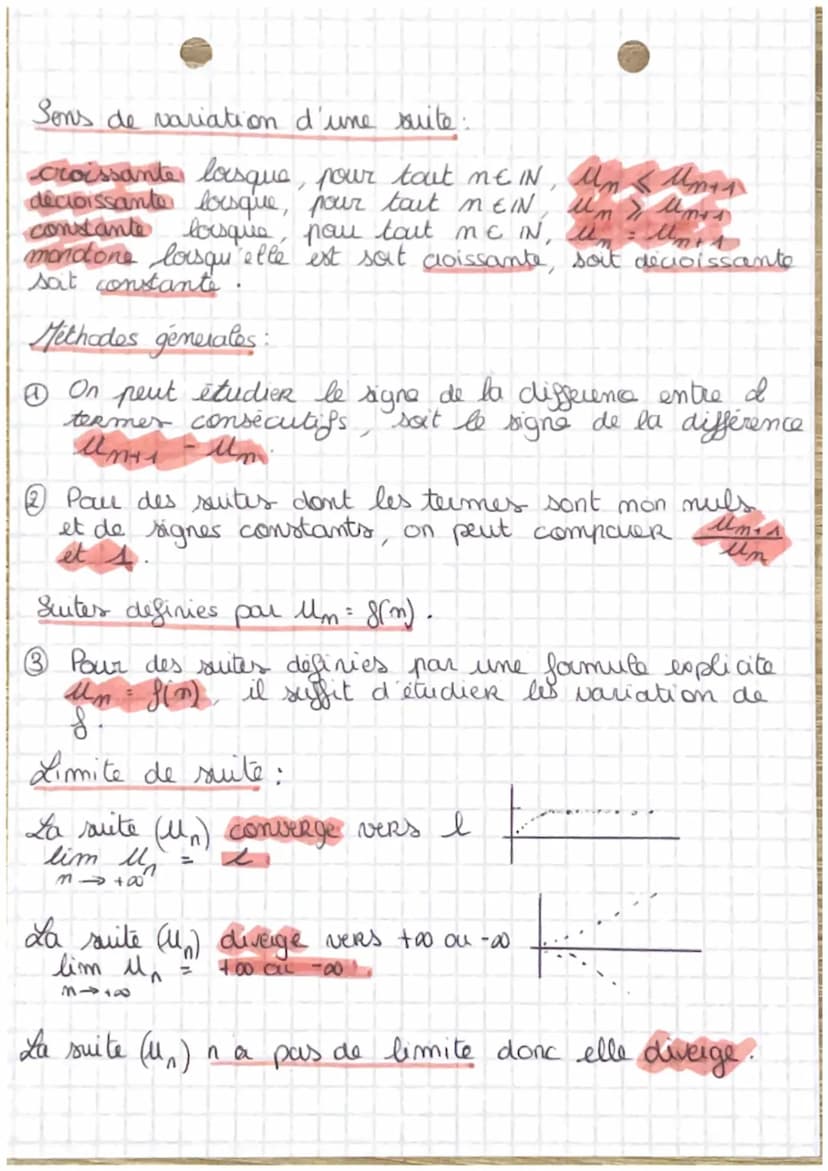 Sens de variation d'une suite :
croissante lorsque, pour tout n ∈ IN, Un ⩽ Un+1
décroissante lorsque, pour tout n ∈ IN, Un ⩾ Un+1
constante lorsque, pour tout n ∈ IN, Un = Un+1
monotone lorsqu'elle est soit croissante, soit décroissante
soit constante.
Méthodes générales :
① On peut étudier le signe de la différence entre 2
termes consécutifs, soit le signe de la différence
Un+1 - Un.
② Pour des suites dont les termes sont non nuls
et de signes constants, on peut comparer Un+1/Un
et 1.
Suites définies par Un = f(n).
③ Pour des suites définies par une formule explicite
Un = f(n), il suffit d'étudier les variation de
f.
Limite de suite :
La suite (Un) converge vers l
lim Un = l
n → +∞
La suite (Un) diverge vers +∞ ou -∞
lim Un = +∞ ou -∞
n → +∞
La suite (Un) n a pas de limite donc elle diverge.